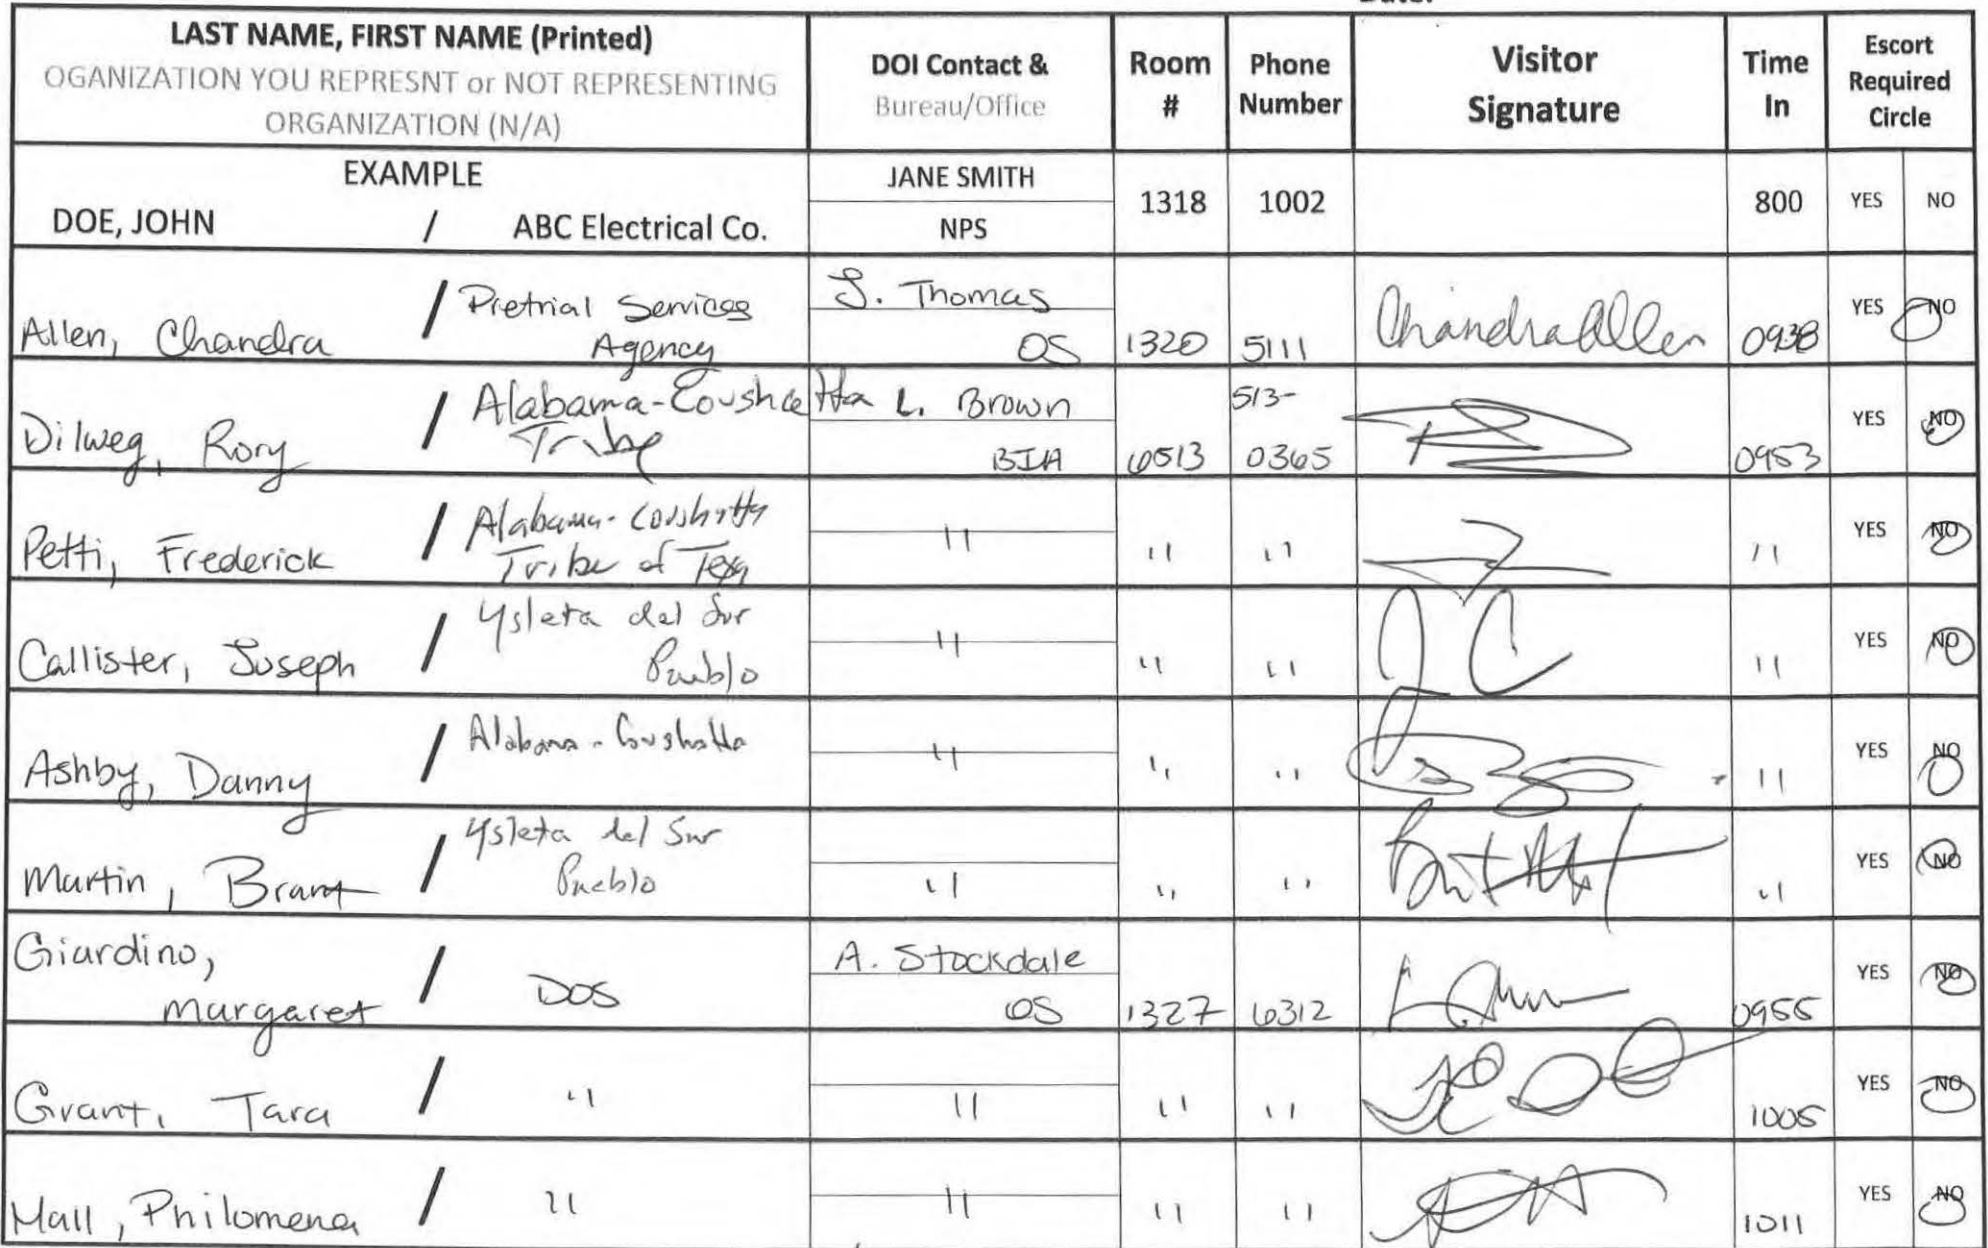 LAST NAME, FIRST NAME (Printed)
OGANIZATION YOU REPRESNT or NOT REPRESENTING
ORGANIZATION (N/A)
DOI Contact &
Bureau/Office
Room
#
Phone
Number
Visitor
Signature
Time
In
Escort
Required
Circle
EXAMPLE
DOE, JOHN / ABC Electrical Co.
JANE SMITH
NPS
1318 1002 800 YES NO
Allen, Chandra / Pretrial Services
Agency
J. Thomas
OS
1320 5111 Chandra Allen 0938 YES NO
Dilweg, Rory / Alabama-Coushatta
Tribe
L. Brown
BIA
6513 513-
0365 0953 YES NO
Petti, Frederick / Alabama-Coushatta
Tribe of Texas
" " " " YES NO
Callister, Joseph / Ysleta del Sur
Pueblo
" " " JC " YES NO
Ashby, Danny / Alabama-Coushatta
" " " " YES NO
Martin, Brant / Ysleta del Sur
Pueblo
" " " " YES NO
Giardino,
Margaret / DOS
A. Stockdale
OS
1327 6312 0955 YES NO
Grant, Tara / "
" " " 1005 YES NO
Mall, Philomena / "
" " " 1011 YES NO